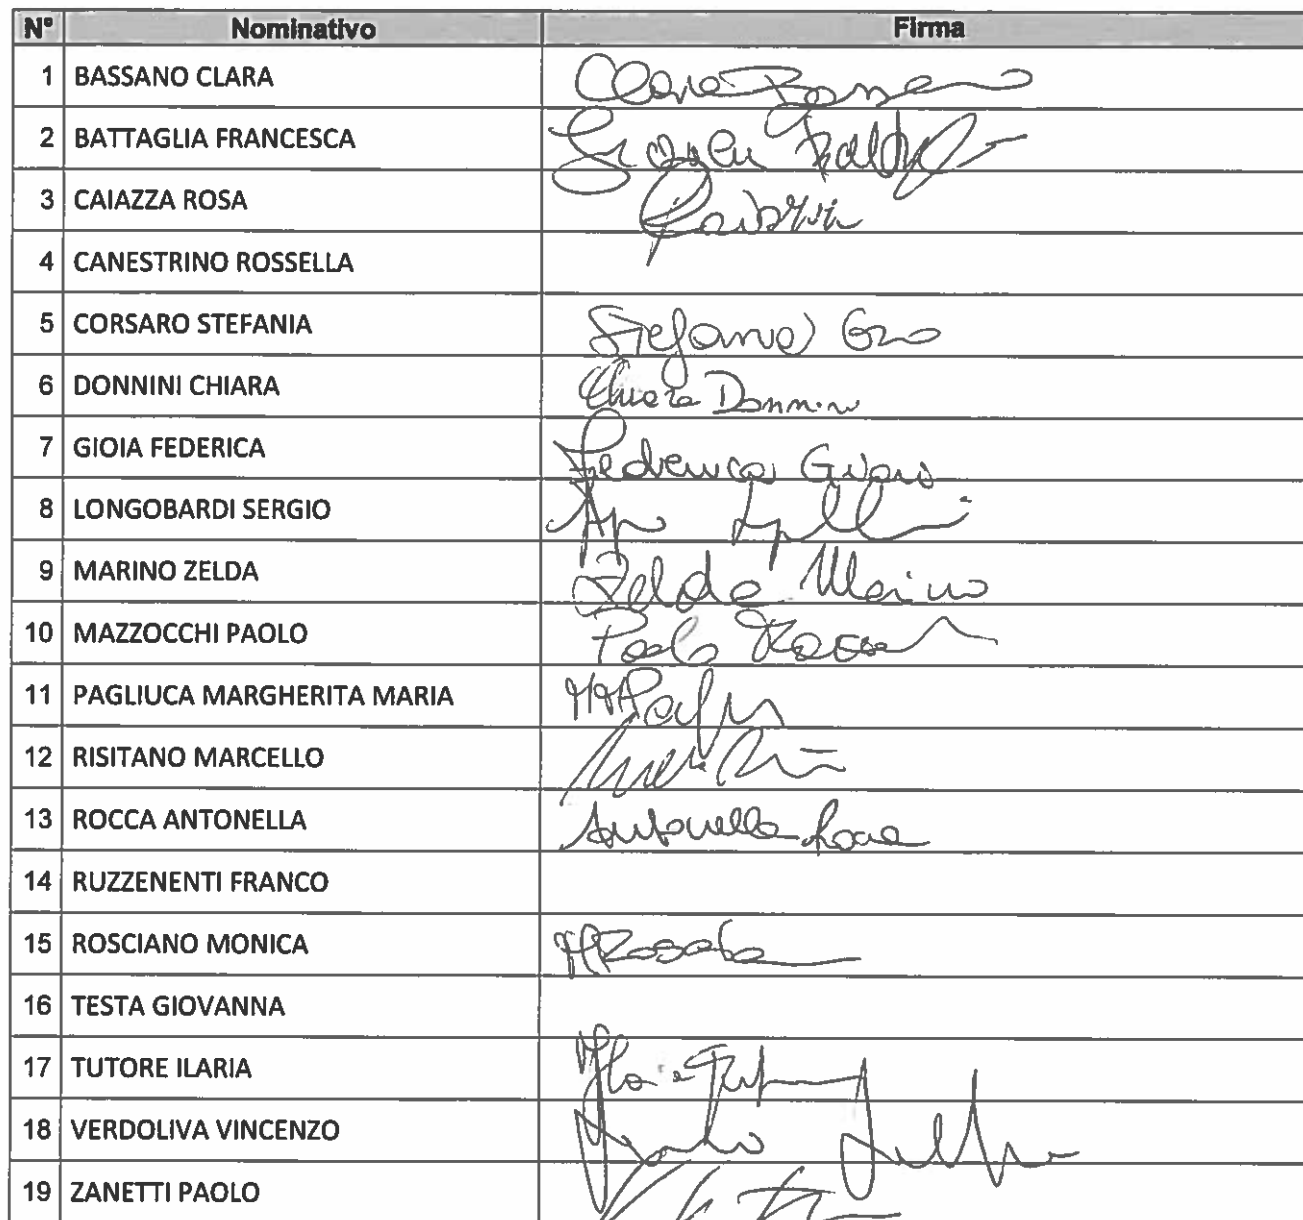 N° Nominativo Firma
1 BASSANO CLARA Clara Bassano
2 BATTAGLIA FRANCESCA
3 CAIAZZA ROSA
4 CANESTRINO ROSSELLA
5 CORSARO STEFANIA Stefania
6 DONNINI CHIARA Chiara Donnini
7 GIOIA FEDERICA Federica Gioia
8 LONGOBARDI SERGIO
9 MARINO ZELDA Zelda Marino
10 MAZZOCCHI PAOLO Paolo
11 PAGLIUCA MARGHERITA MARIA
12 RISITANO MARCELLO
13 ROCCA ANTONELLA Antonella Rocca
14 RUZZENENTI FRANCO
15 ROSCIANO MONICA
16 TESTA GIOVANNA
17 TUTORE ILARIA
18 VERDOLIVA VINCENZO
19 ZANETTI PAOLO